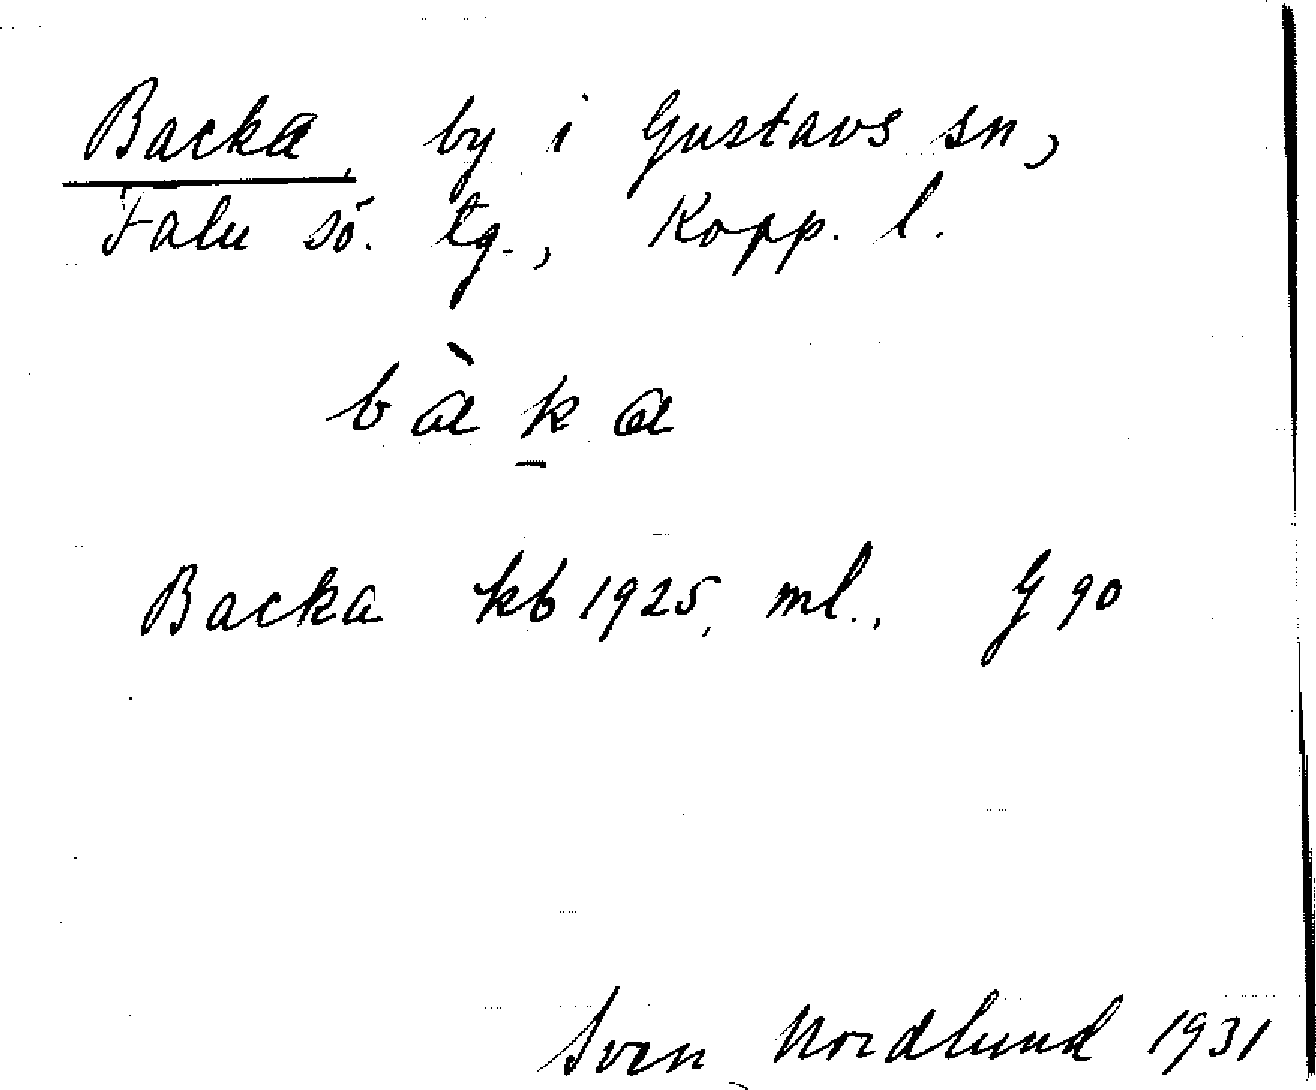 Backa by i Gustavs sn,
Falu sö. tg., Kopp. l.
bàk̲a
Backa kb 1925, ml., G 90
Sven Nordlund 1931